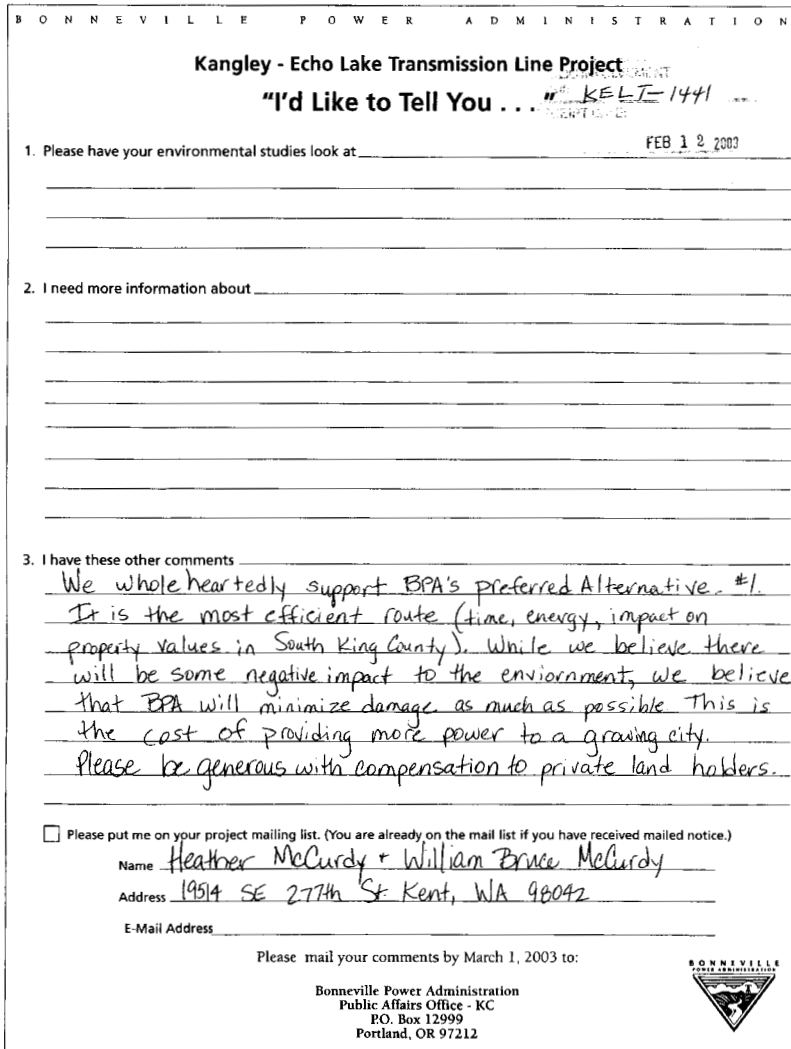 BONNEVILLE POWER ADMINISTRATION
Kangley - Echo Lake Transmission Line Project
"I'd Like to Tell You . . ." KELT-1441
FEB 12 2003
1. Please have your environmental studies look at
2. I need more information about
3. I have these other comments
We wholeheartedly support BPA's preferred Alternative #1.
It is the most efficient route (time, energy, impact on
property values in South King County). While we believe there
will be some negative impact to the enviornment, we believe
that BPA will minimize damage as much as possible This is
the cost of providing more power to a growing city.
Please be generous with compensation to private land holders.
Please put me on your project mailing list. (You are already on the mail list if you have received mailed notice.)
Name Heather McCurdy + William Bruce McCurdy
Address 19514 SE 277th St Kent, WA 98042
E-Mail Address
Please mail your comments by March 1, 2003 to:
Bonneville Power Administration
Public Affairs Office - KC
P.O. Box 12999
Portland, OR 97212
BONNEVILLE
POWER ADMINISTRATION